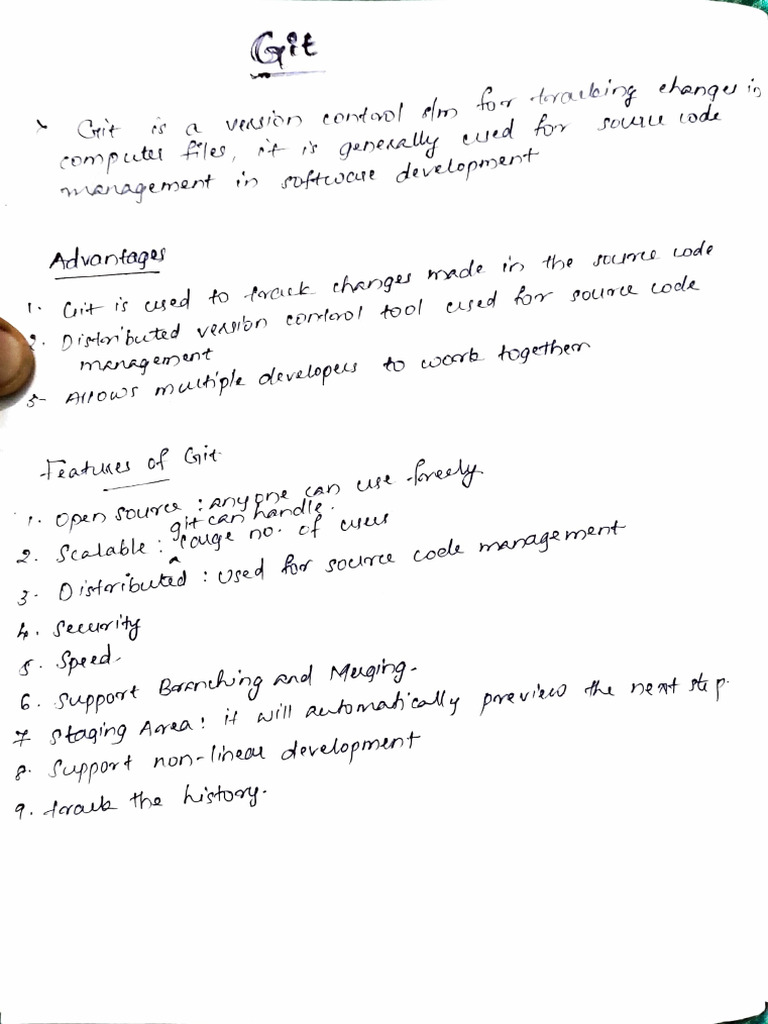 Git
Git is a version control s/m for tracking changes in
computer files, it is generally used for source code
management in software development
Advantages
1. Git is used to track changes made in the source code
2. Distributed version control tool used for source code
management
3- Allows multiple developers to work together
Features of Git
1. Open source : anyone can use freely
git can handle
2. Scalable : large no. of users
3. Distributed : used for source code management
4. Security
5. Speed.
6. Support Branching and Merging.
7 Staging Area : it will automatically preview the next step.
8. Support non-linear development
9. track the history.